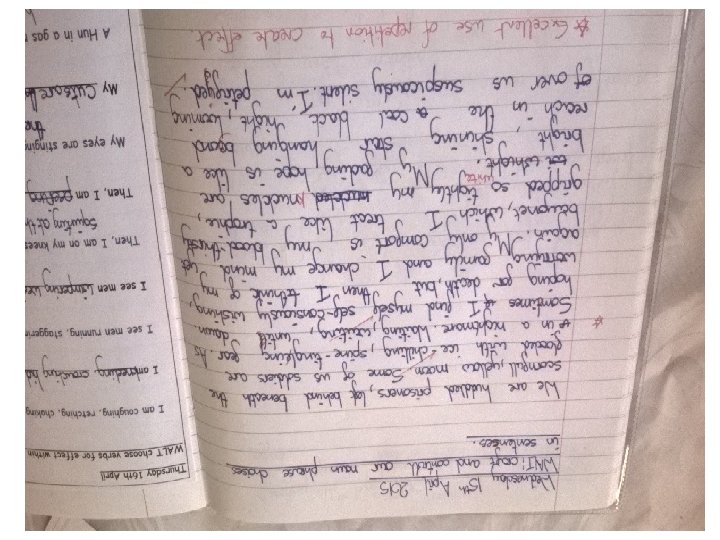 Wednesday 15th April 2015
WALT: craft and controll our noun phrase choises
in sentences.
We are huddled prisoners, left behind beneath the
scornfull, yellow moon. Some of us soldiers are
flooded with ice-chilling, spine-tingleing fear. As
in a nightmare. Waiting, waiting, untill dawn.
Somtimes I find myself self-consiously wishing,
hoping for death, but, then I think of my
worrying family and I change my mind yet
again. My only comfort is my blood-thirsty
bayonet, which I treat like a trophie,
gripped so tightly my knuckles are
white. My fading hope is like a
bright, shining star hanging beyond
reach in the coal black night, looming
over us suspiciously silent. I'm petrifyed.
* Excellent use of repetition to create effect.
Thursday 16th April
WALT choose verbs for effect within
I am coughing, retching, choking
I am crouching
I see men running, staggering
I see men
Then, I am on my knees
Squinting at th
Then, I am
My eyes are stinging
the
My
A Hun in a gas